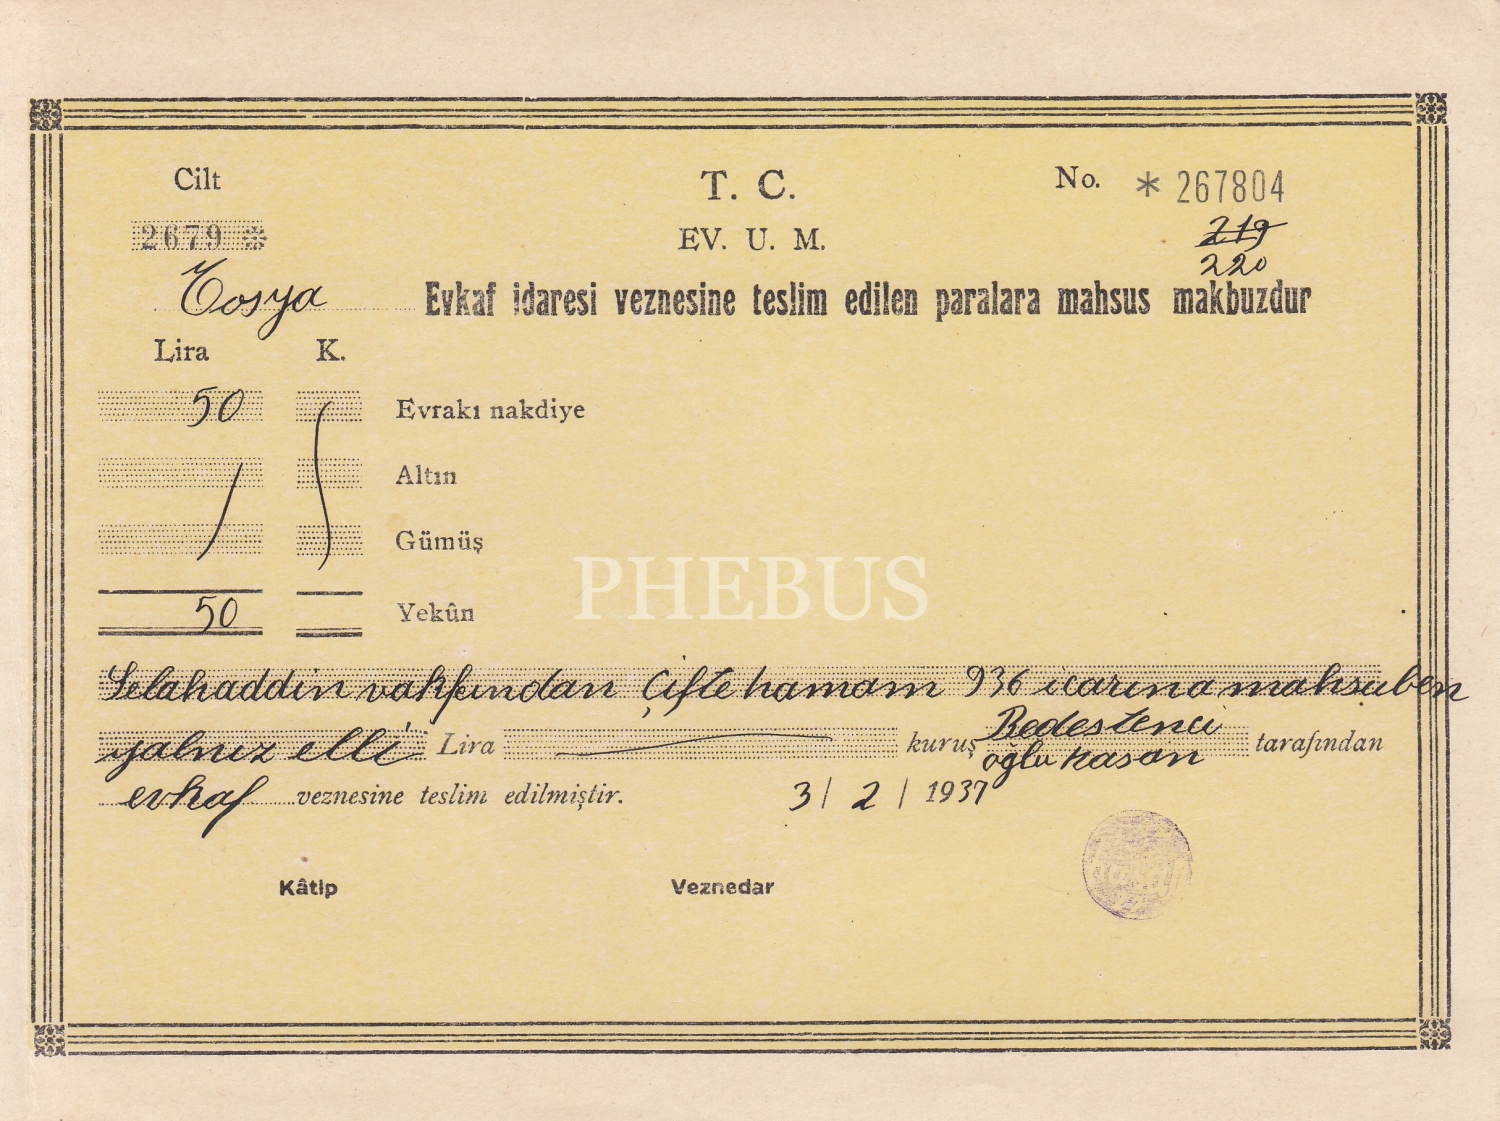 Cilt
T. C.
No. * 267804
2679
EV. U. M.
219
220
Tosya Evkaf idaresi veznesine teslim edilen paralara mahsus makbuzdur
Lira K.
50 Evrakı nakdiye
Altın
Gümüş
50 Yekûn
PHEBUS
Selahaddin vakfından Çifte hamam 936 icarına mahsuben
yalnız elli Lira kuruş Bedestenci oğlu hasan tarafından
evkaf veznesine teslim edilmiştir. 3 / 2 / 1937
Kâtip Veznedar